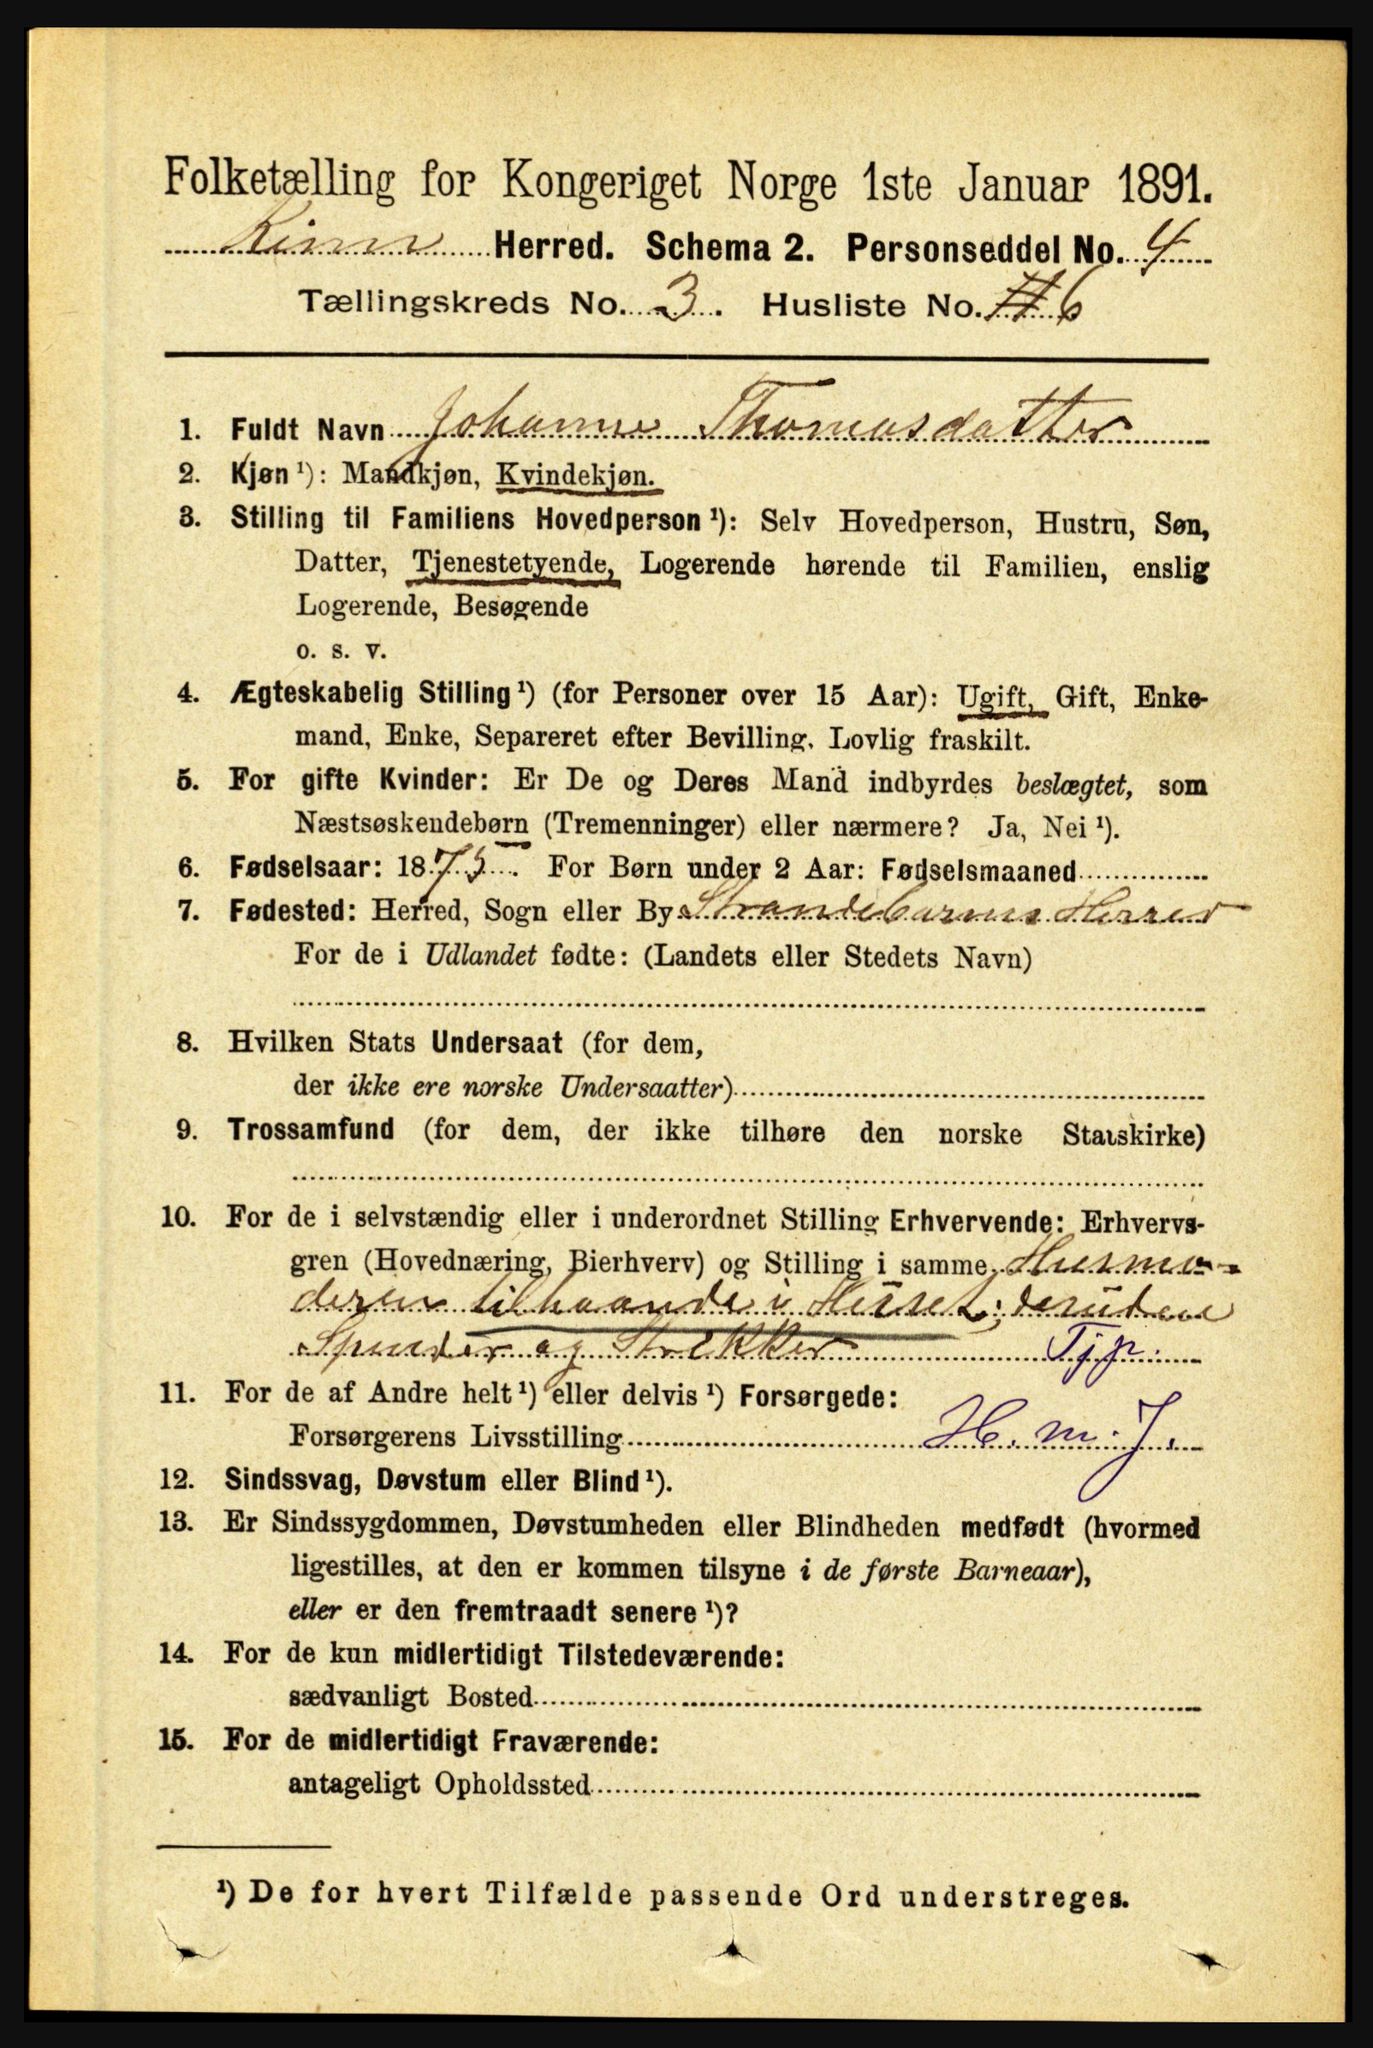 Folketælling for Kongeriget Norge 1ste Januar 1891.
Kinn Herred. Schema 2. Personseddel No. 4
Tællingskreds No. 3. Husliste No. 6
1. Fuldt Navn Johanne Thomasdatter
2. Kjøn ¹): Mandkjøn, Kvindekjøn.
3. Stilling til Familiens Hovedperson ¹): Selv Hovedperson, Hustru, Søn,
Datter, Tjenestetyende, Logerende hørende til Familien, enslig
Logerende, Besøgende
o. s. v.
4. Ægteskabelig Stilling ¹) (for Personer over 15 Aar): Ugift, Gift, Enke-
mand, Enke, Separeret efter Bevilling. Lovlig fraskilt.
5. For gifte Kvinder: Er De og Deres Mand indbyrdes beslægtet, som
Næstsøskendebørn (Tremenninger) eller nærmere? Ja, Nei ¹).
6. Fødselsaar: 1875. For Børn under 2 Aar: Fødselsmaaned
7. Fødested: Herred, Sogn eller By Strandebarms Herred
For de i Udlandet fødte: (Landets eller Stedets Navn)
8. Hvilken Stats Undersaat (for dem,
der ikke ere norske Undersaatter)
9. Trossamfund (for dem, der ikke tilhøre den norske Statskirke)
10. For de i selvstændig eller i underordnet Stilling Erhvervende: Erhvervs-
gren (Hovednæring, Bierhverv) og Stilling i samme Husmo-
deren tilhaande i Huset; desuden
Spinder og Strikker Tjp.
11. For de af Andre helt ¹) eller delvis ¹) Forsørgede:
Forsørgerens Livsstilling H. m. J.
12. Sindssvag, Døvstum eller Blind ¹).
13. Er Sindssygdommen, Døvstumheden eller Blindheden medfødt (hvormed
ligestilles, at den er kommen tilsyne i de første Barneaar),
eller er den fremtraadt senere ¹)?
14. For de kun midlertidigt Tilstedeværende:
sædvanligt Bosted
15. For de midlertidigt Fraværende:
antageligt Opholdssted
¹) De for hvert Tilfælde passende Ord understreges.